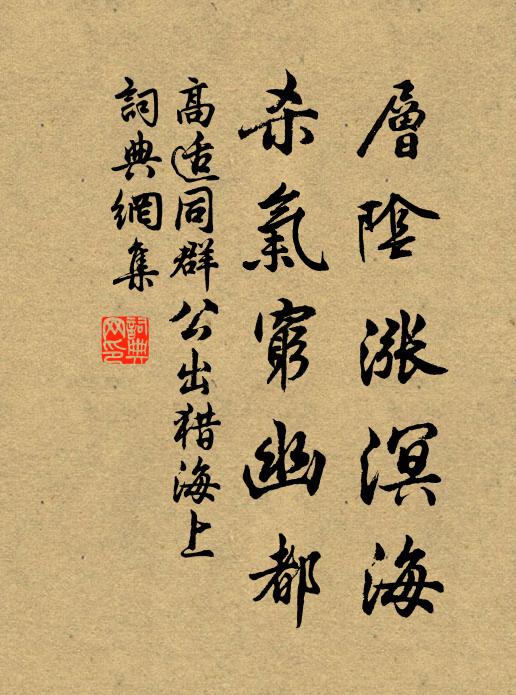 層陰漲溟海
杀氣窮幽都
高适同群公出猎海上
詞典網集
詞典
网印